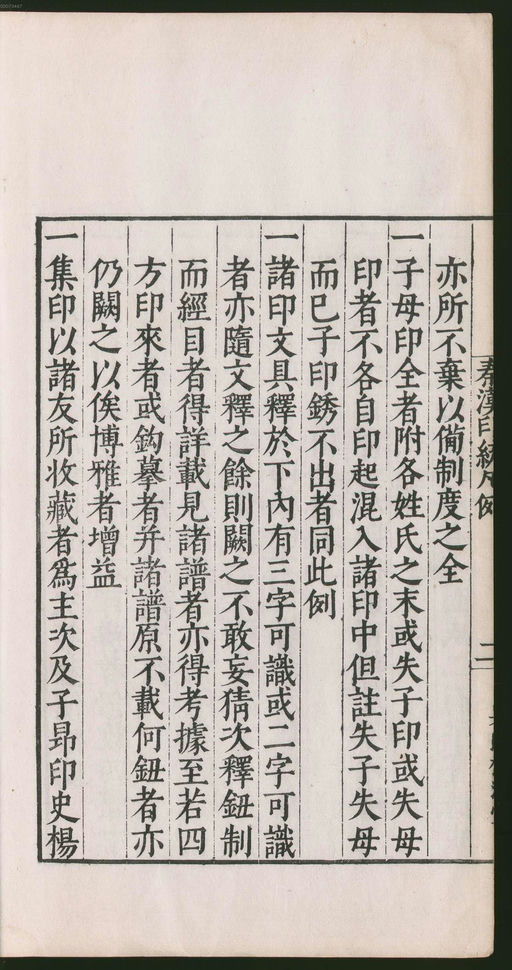 秦漢印統凡例
二
亦所不棄以備制度之全
一子母印全者附各姓氏之末或失子印或失母
印者不各自印起混入諸印中但註失子失母
而已子印銹不出者同此例
一諸印文具釋於下內有三字可識或二字可識
者亦隨文釋之餘則闕之不敢妄猜次釋鈕制
而經目者得詳載見諸譜者亦得考據至若四
方印來者或鈎摹者并諸譜原不載何鈕者亦
仍闕之以俟博雅者增益
一集印以諸友所收藏者爲主次及子昂印史楊